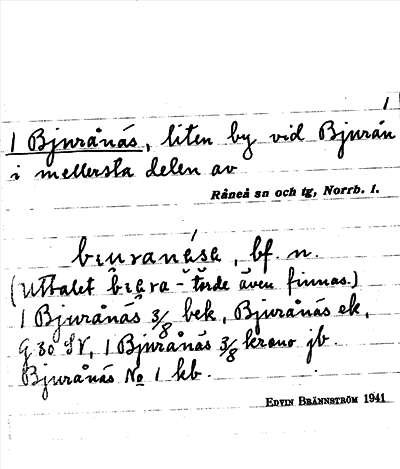 1
1 Bjurånäs, liten by vid Bjurån
i mellersta delen av
Råneå sn och tg, Norrb. l.
bf. n.
(Uttalet även finnas.)
1 Bjurånäs 3/8 bek, Bjurånäs ek,
G 30 SV, 1 Bjurånäs 3/8 krono jb.
Bjurånäs No 1 kb.
EDVIN BRÄNNSTRÖM 1941